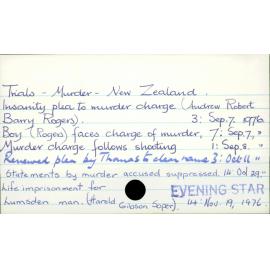 Trials - Murder - New Zealand.
Insanity plea to murder charge (Andrew Robert
Barry Rogers). 3: Sep. 7. 1976
Boy (Rogers) faces charge of murder, 7: Sep. 7, "
Murder charge follows shooting 1: Sep. 8. "
Renewed plea by Thomas to clear name 3: Oct 11 "
Statements by murder accused suppressed. 14: Oct 29, "
Life imprisonment for
Lumsden man. (Harold Gibson Soper). 14: Nov. 19, 1976.
EVENING STAR